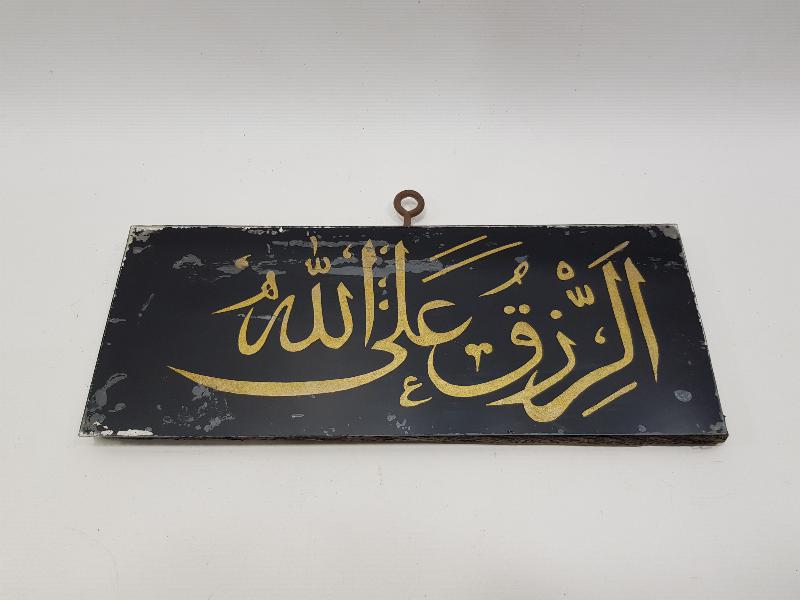 الرِّزْقُ عَلَى اللهُ